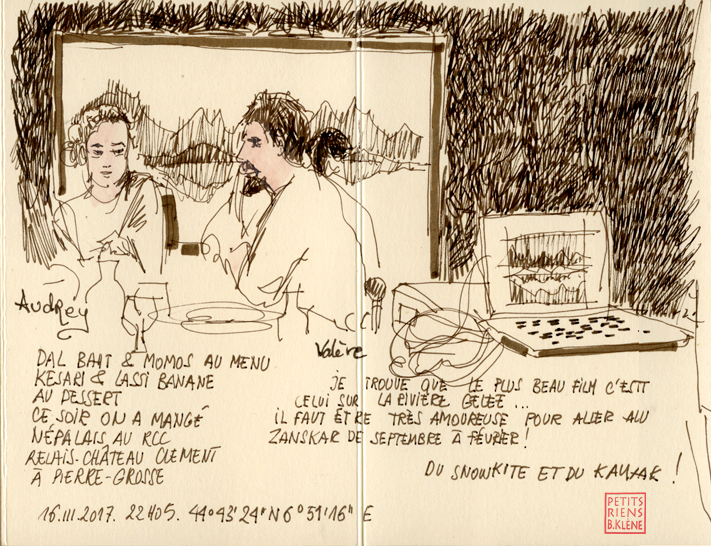 Audrey
Valère
DAL BAHT & MOMOS AU MENU
KESARI & LASSI BANANE
AU DESSERT
CE SOIR ON A MANGÉ
NÉPALAIS AU RCC
RELAIS-CHÂTEAU CLEMENT
À PIERRE-GROSSE
JE TROUVE QUE LE PLUS BEAU FILM C'EST
CELUI SUR LA RIVIÈRE GELÉE ...
IL FAUT ÊTRE TRÈS AMOUREUSE POUR ALLER AU
ZANSKAR DE SEPTEMBRE À FÉVRIER !
DU SNOWKITE ET DU KAYAK !
16.III.2017. 22H05. 44°43'24"N 6°51'16" E
PETITS
RIENS
B.KLÈNE